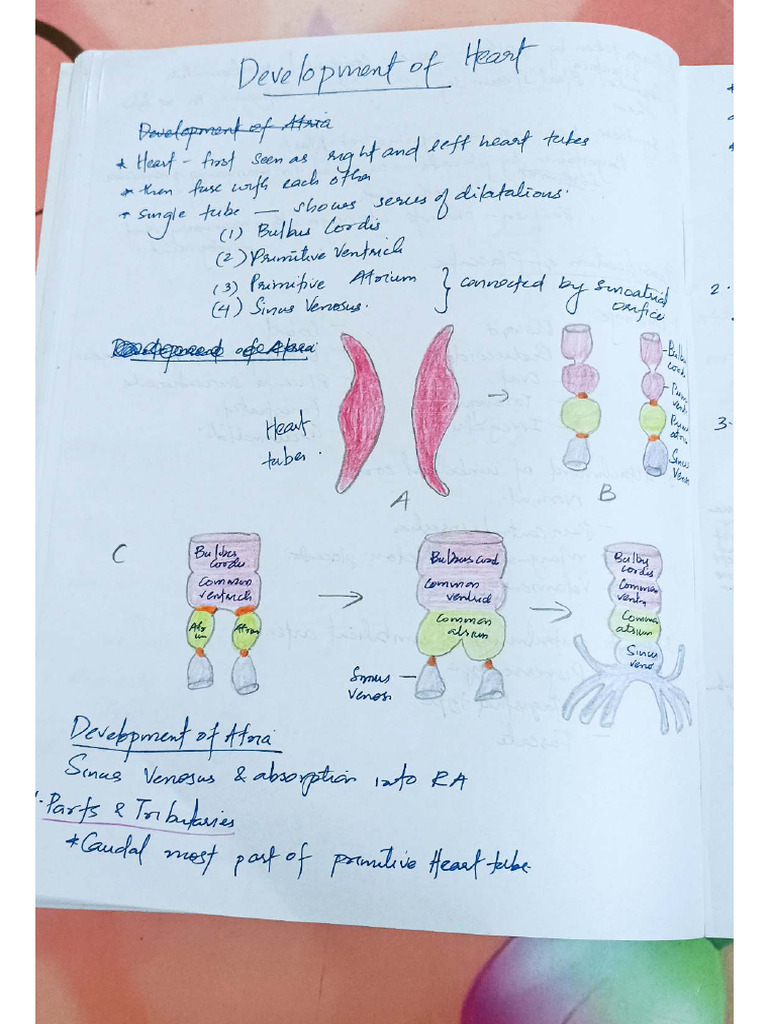 Development of Heart
Development of Atria
* Heart - first seen as right and left heart tubes
* then fuse with each other
* single tube — shows series of dilatations.
(1) Bulbus Cordis
(2) Primitive Ventricle
(3) Primitive Atrium } connected by sinoatrial orifice
(4) Sinus Venosus.
Development of Atria:
Heart tubes.
Bulbus cordis
Prim vent
Prim atri
Sinus Venos
A
B
2.
3-
C
Bulbus cordis
Common ventricle
Atrium
Atrium
Bulbus cord
Common ventricl
Common atrium
Sinus venosi
Bulbus cordis
Common ventri
Common atrium
Sinus veno
Development of Atria
Sinus Venosus & absorption into RA
Parts & Tributaries
* Caudal most part of primitive Heart tube